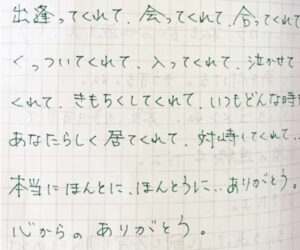 出逢ってくれて、会ってくれて、合ってくれて
くっついてくれて、入ってくれて、泣かせて
くれて、きもちくしてくれて、いつもどんな時も
あなたらしく居てくれて、対峙してくれて…
本当にほんとに、ほんとうに‥ありがとう。
心からの ありがとう。